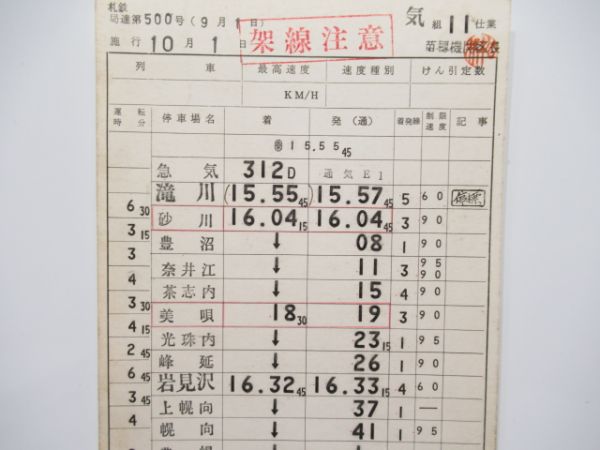 札鉄
局達第500号(9月1日)
施行10月1日
架線注意
気 組 11 仕業
列車 最高速度 速度種別 けん引定数
KM/H
運転時分 停車場名 着 発(通) 着発線 制限速度 記事
15.55 45
急気 312D 通気E1
滝川 (15.55 45) 15.57 45 5 60
6 30
砂川 16.04 15 16.04 45 3 90
3 15
豊沼 ↓ 08 1 90
3
奈井江 ↓ 11 3 95 90
4
茶志内 ↓ 15 4 90
3 30
美唄 18 30 19 3 90
4 15
光珠内 ↓ 23 15 1 95
2 45
峰延 ↓ 26 1 90
6 45
岩見沢 16.32 45 16.33 15 4 60
3 45
上幌向 ↓ 37 1 —
4
幌向 ↓ 41 1 95